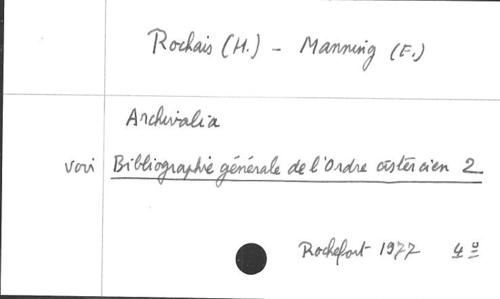 Rochais (H.) - Manning (E.)
Archivalia
voir Bibliographie générale de l'Ordre cistercien 2
Rochefort 1977 4º